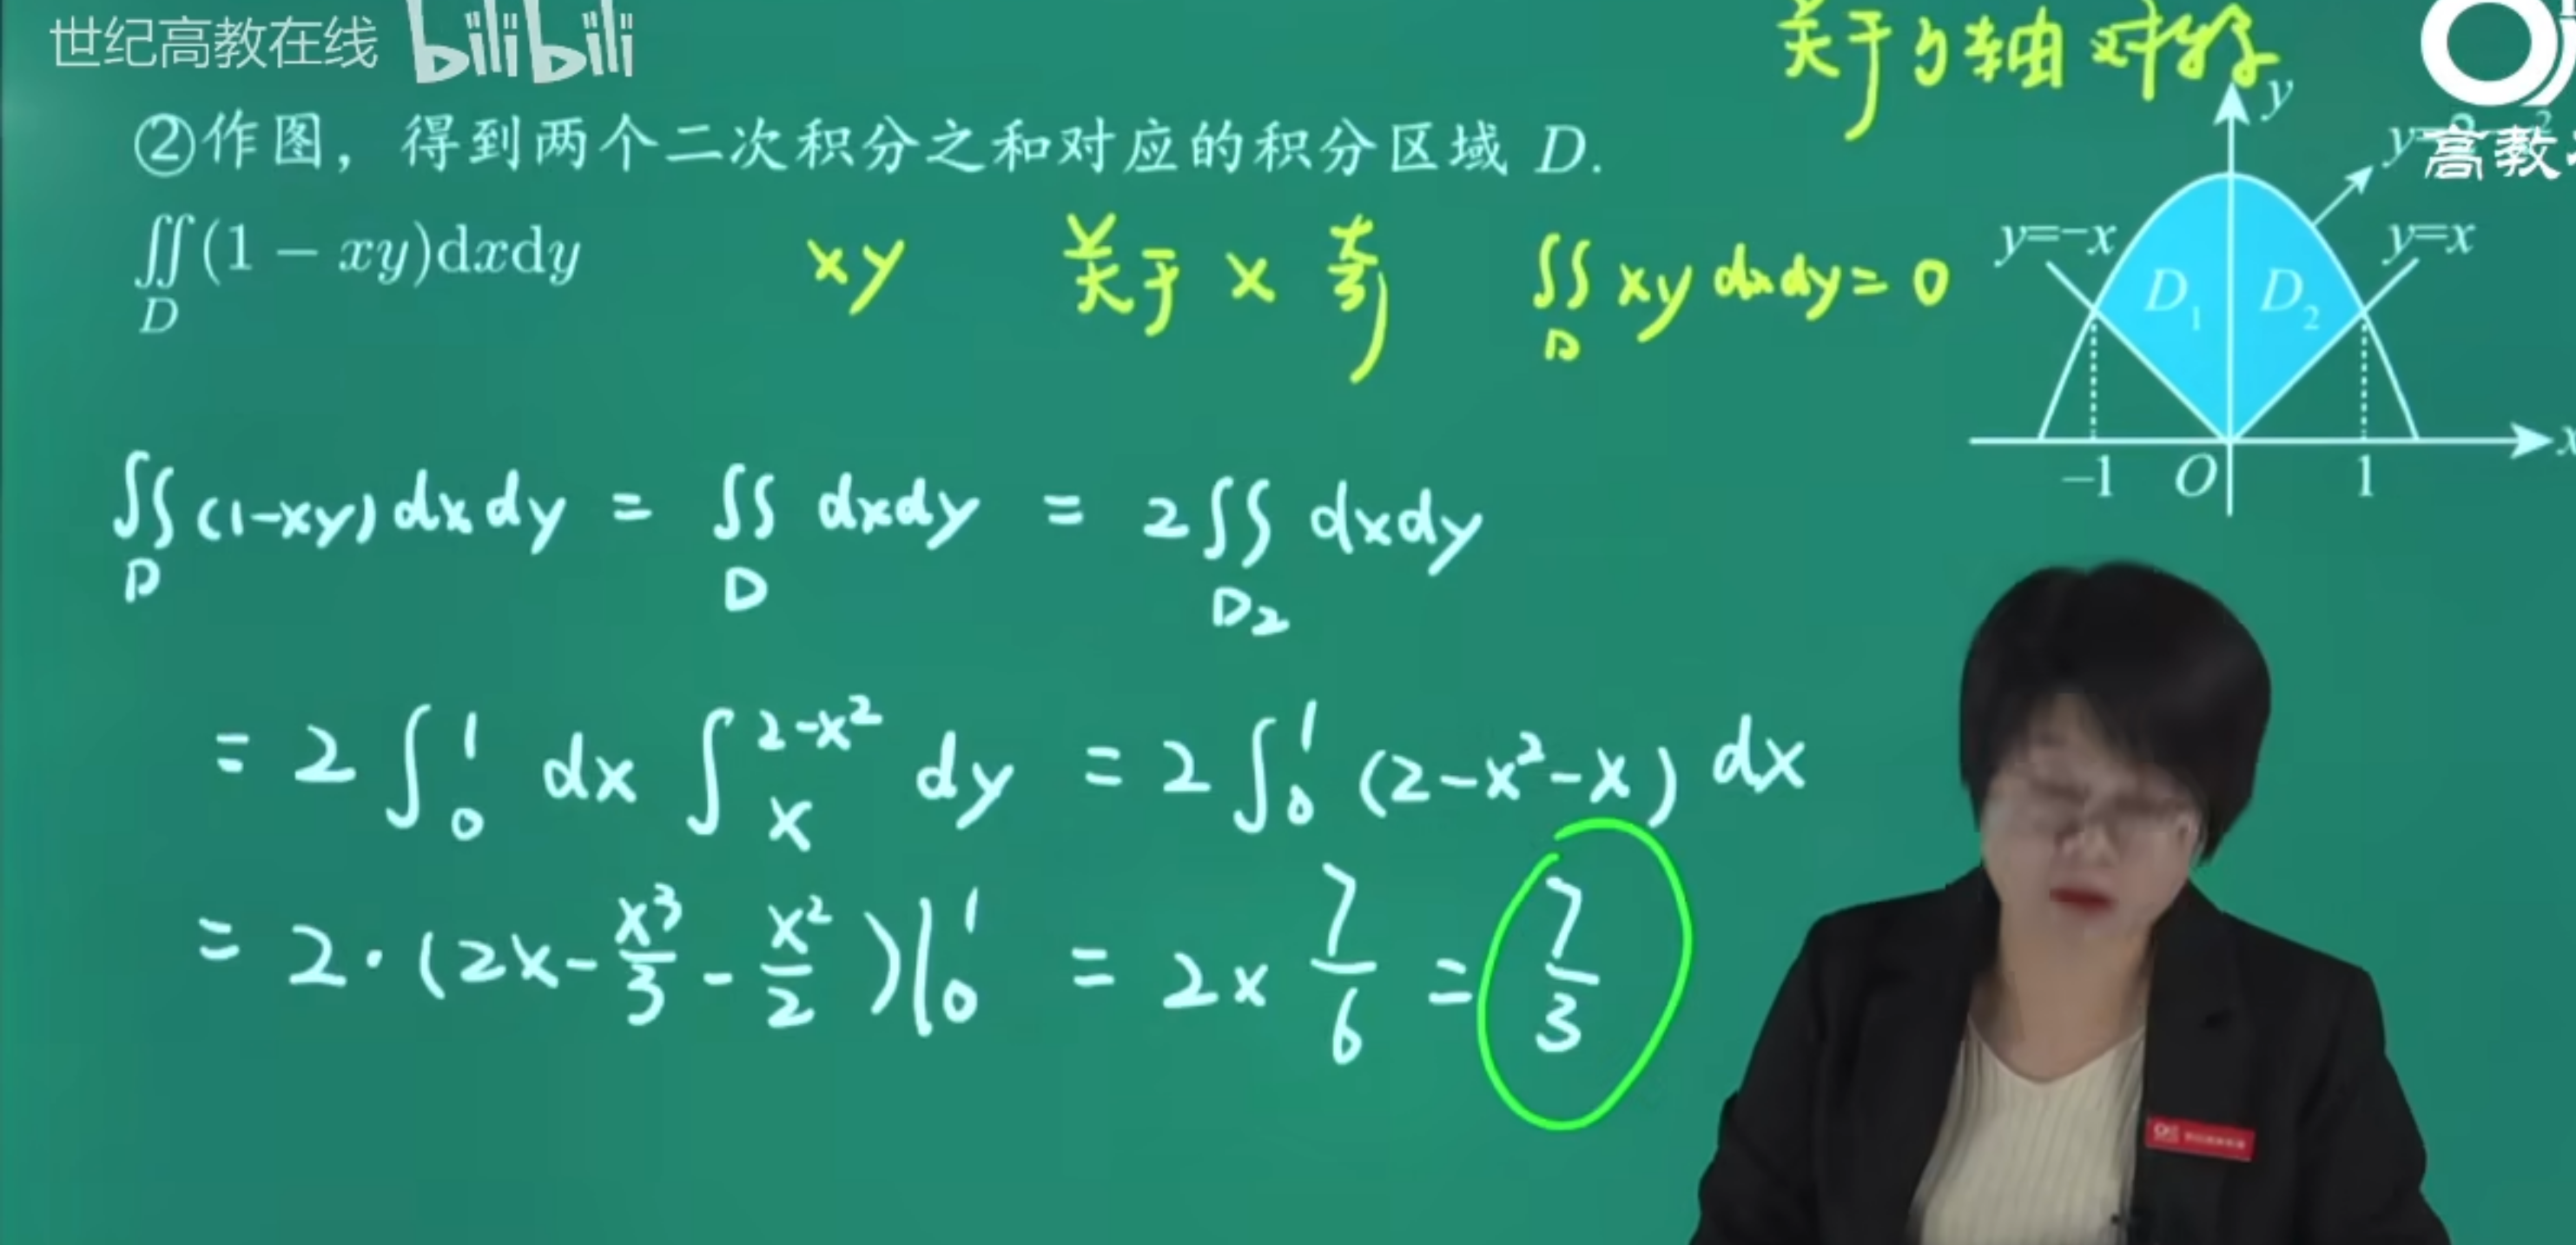 世纪高教在线 bilibili
关于y轴对称
②作图，得到两个二次积分之和对应的积分区域 D.
∬_D (1 − xy)dxdy
xy 关于 x 奇 ∬_D xy dxdy = 0
y
高教
y=−x
y=x
D₁ D₂
−1 O 1 x
∬_D (1-xy) dxdy = ∬_D dxdy = 2∬_D₂ dxdy
= 2 ∫₀¹ dx ∫_x^{2-x²} dy = 2 ∫₀¹ (2-x²-x) dx
= 2·(2x - x³/3 - x²/2)|₀¹ = 2 × 7/6 = 7/3